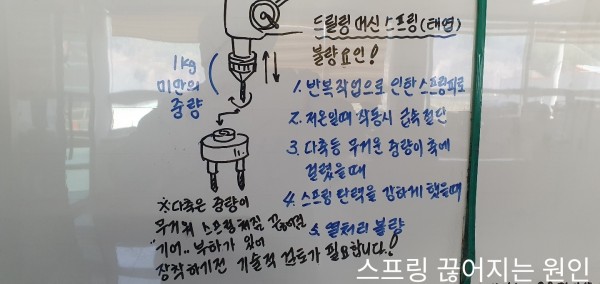 드릴링 머신 스프링 (태엽)
불량요인!
1kg
미만의
중량
1. 반복작업으로 인한 스프링피로
2. 저온일때 작동시 급속절단
3. 다축등 무거운 중량이 축에
걸렸을때
4. 스프링 탄력을 강하게 했을때
5. 열처리 불량
※ 다축은 중량이
무거워 스프링 쳐짐 끊어짐
"기어.. 부하가 있어
장착하기전 기술적 검토가 필요합니다!
스프링 끊어지는 원인